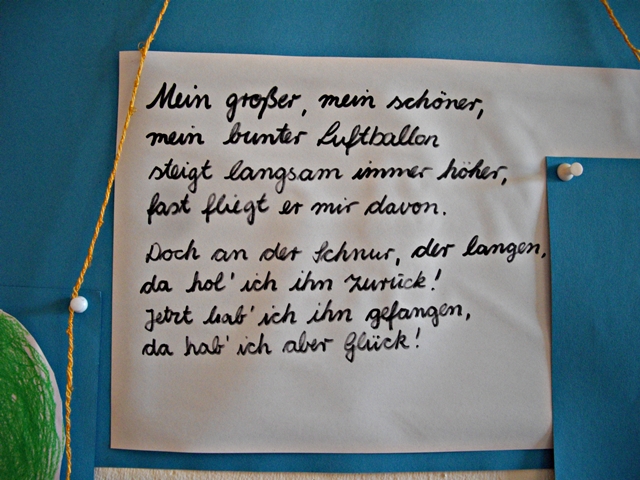 Mein großer, mein schöner,
mein bunter Luftballon
steigt langsam immer höher,
fast fliegt er mir davon.
Doch an der Schnur, der langen,
da hol' ich ihn zurück!
Jetzt hab' ich ihn gefangen,
da hab' ich aber Glück!